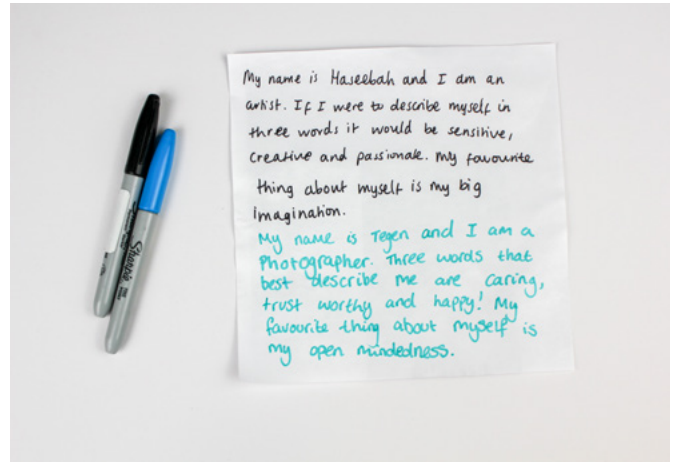 My name is Haseebah and I am an
artist. If I were to describe myself in
three words it would be sensitive,
creative and passionate. My favourite
thing about myself is my big
imagination.
My name is Tegen and I am a
Photographer. Three words that
best describe me are caring,
trust worthy and happy! My
favourite thing about myself is
my open mindedness.
Sharpie